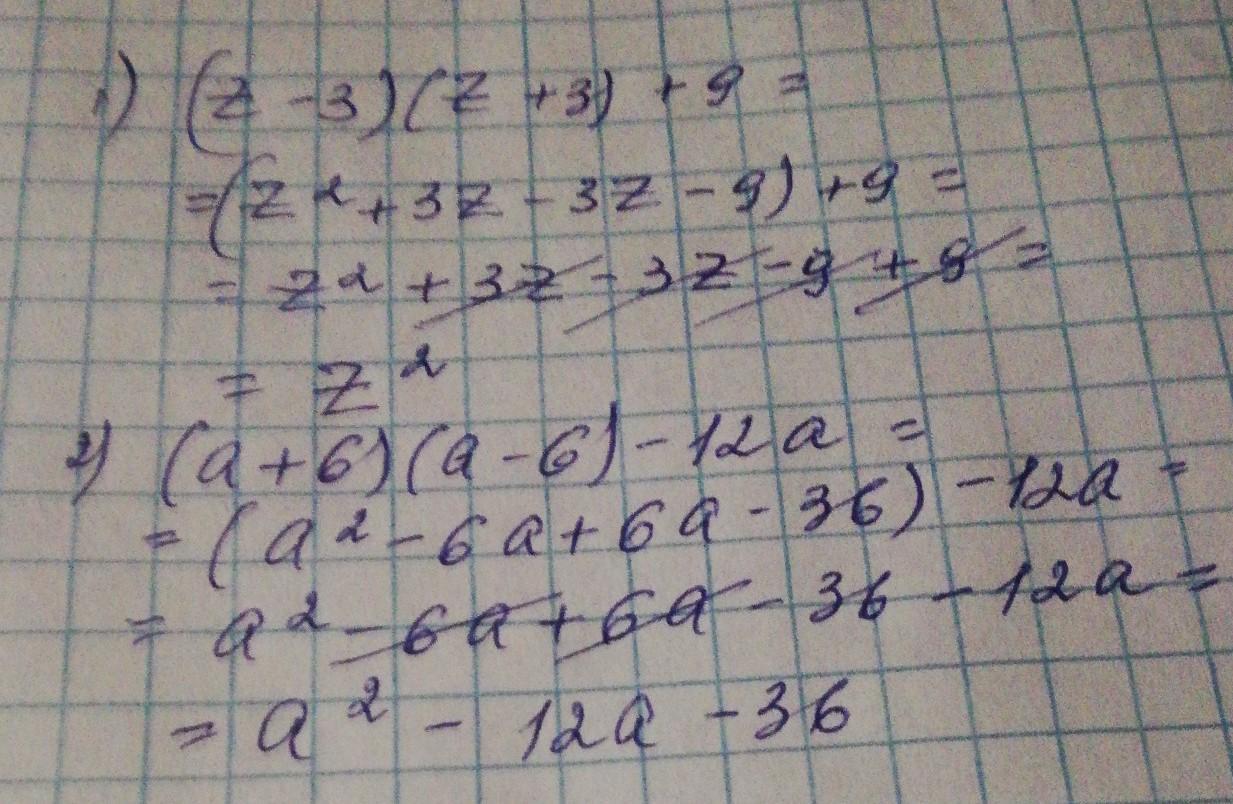 1) (z - 3)(z + 3) + 9 =
= (z² + 3z - 3z - 9) + 9 =
= z² + 3z - 3z - 9 + 9 =
= z²
2) (a + 6)(a - 6) - 12a =
= (a² - 6a + 6a - 36) - 12a =
= a² - 6a + 6a - 36 - 12a =
= a² - 12a - 36